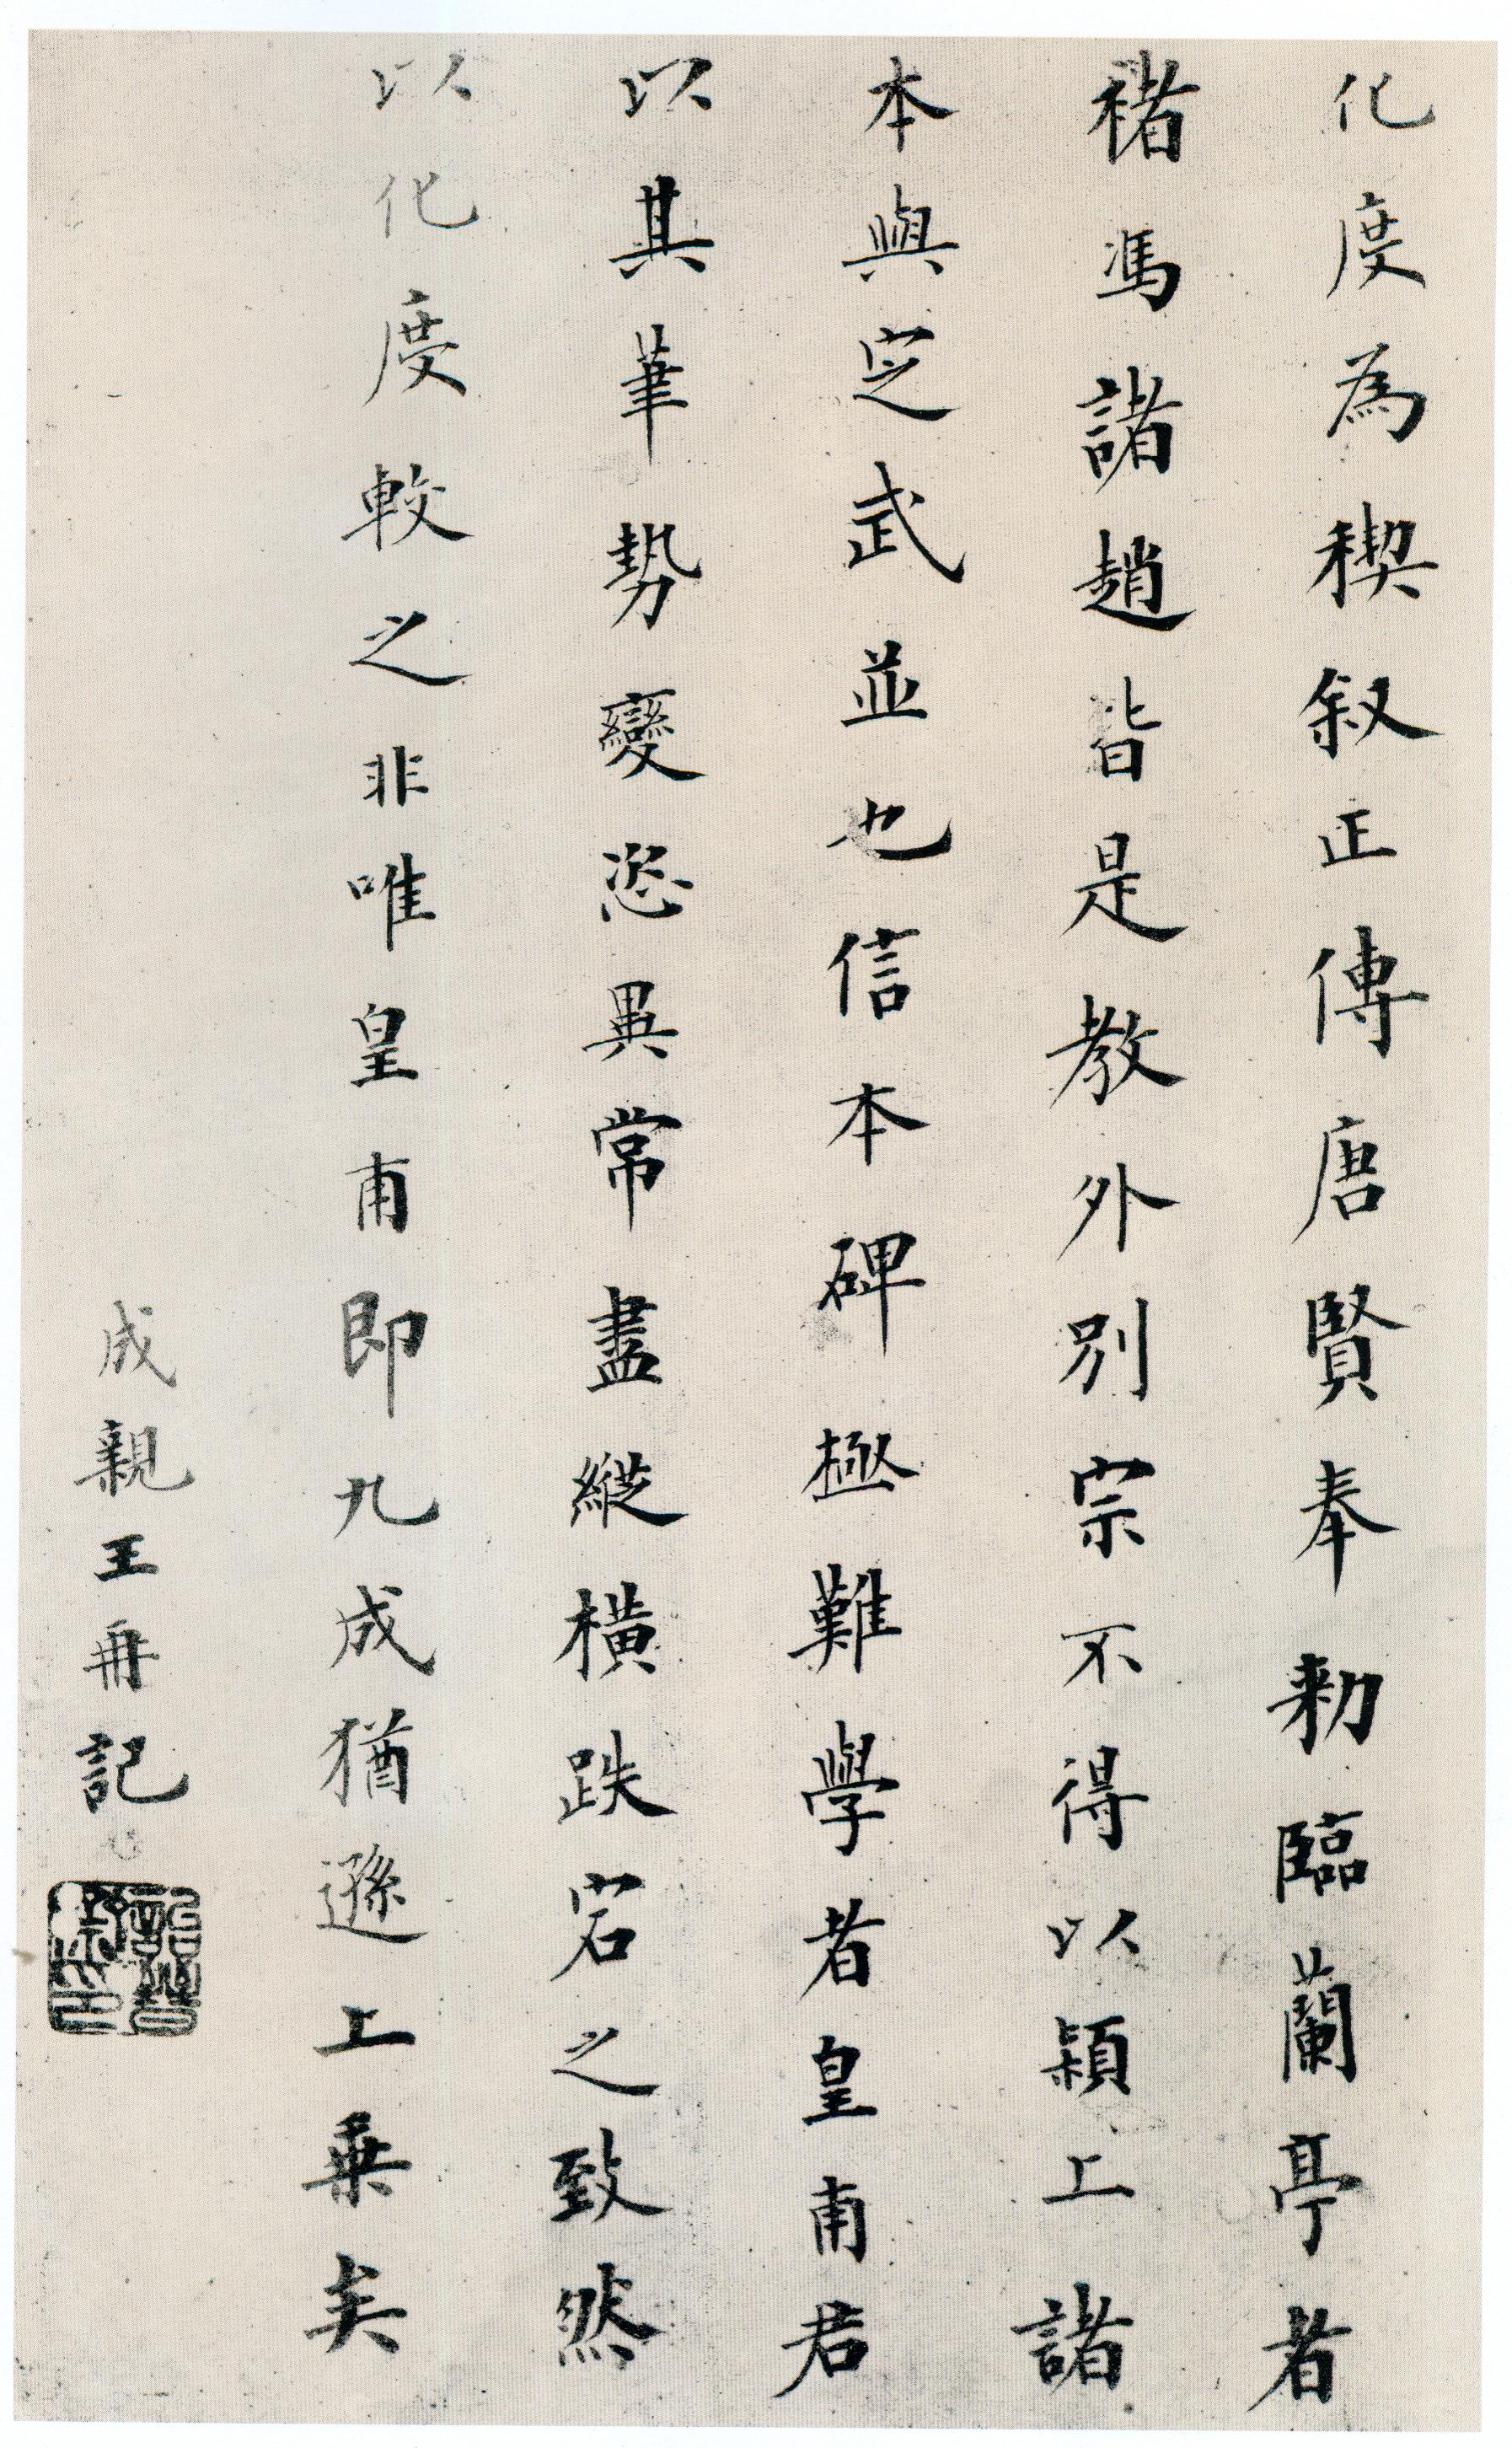 化度為稧叙正傳唐賢奉勑臨蘭亭者
褚馮諸趙皆是教外別宗不得以潁上諸
本與定武並也信本碑極難學者皇甫君
以其筆勢變恣異常盡縱橫跌宕之致然
以化度較之非唯皇甫即九成猶遜上乗矣
成親王再記
詒晉齋印